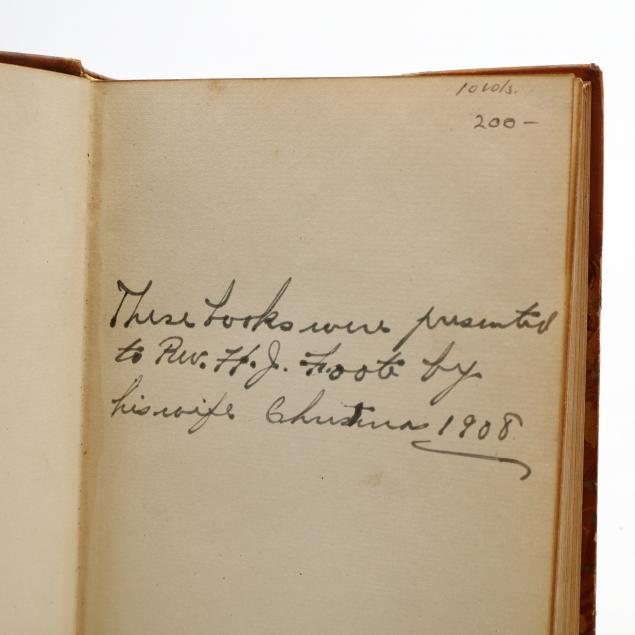 10 vols.
200—
These books were presented
to Rev. H. J. Foote by
his wife Christmas 1908